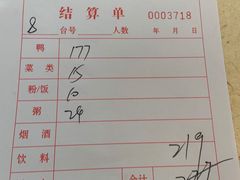 结算单 0003718
8 台号 人数 年 月 日
鸭 177
菜类 15
粉/饭 10
粥 24
烟酒
饮料 219
合计